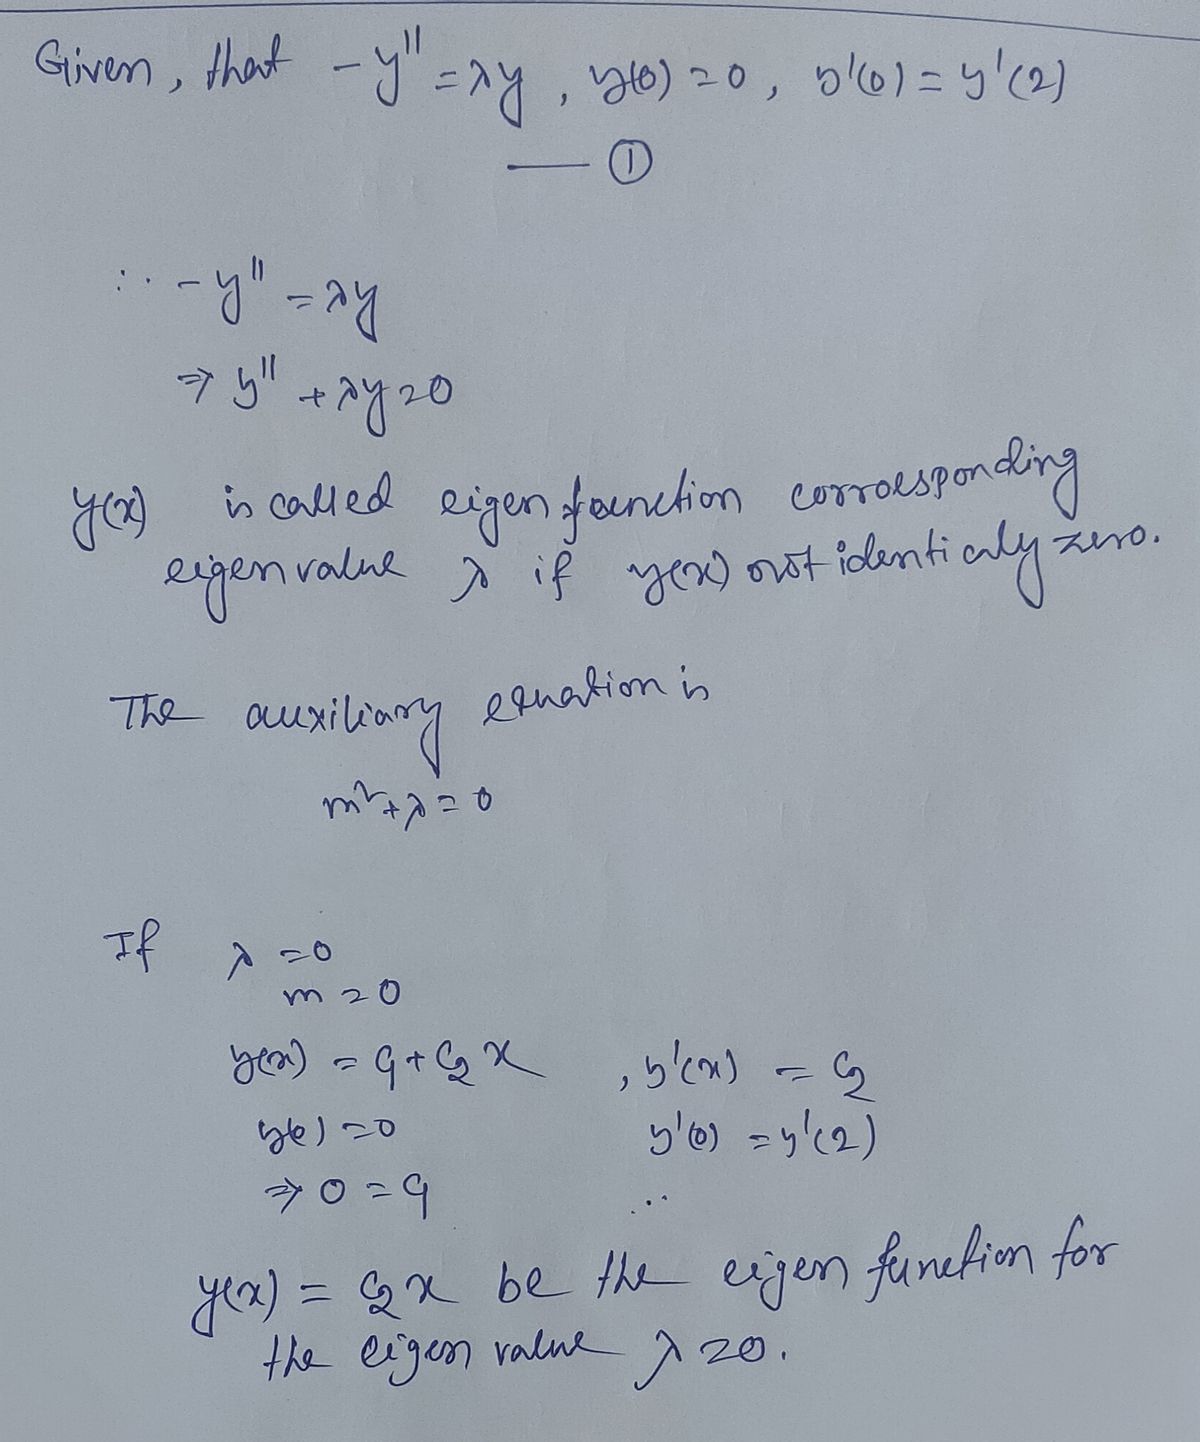 Given, that -y'' = λy, y(0) = 0, y'(0) = y'(2)
— ①
∴ -y'' = λy
⇒ y'' + λy = 0
y(x) is called eigen function corroesponding
eigen value λ if y(x) not identicaly zero.
The auxiliary equation is
m² + λ = 0
If λ = 0
m = 0
y(x) = c₁ + c₂ x , y'(x) = c₂
y(0) = 0 y'(0) = y'(2)
⇒ 0 = c₁ ∴
y(x) = c₂ x be the eigen function for
the eigen value λ = 0.